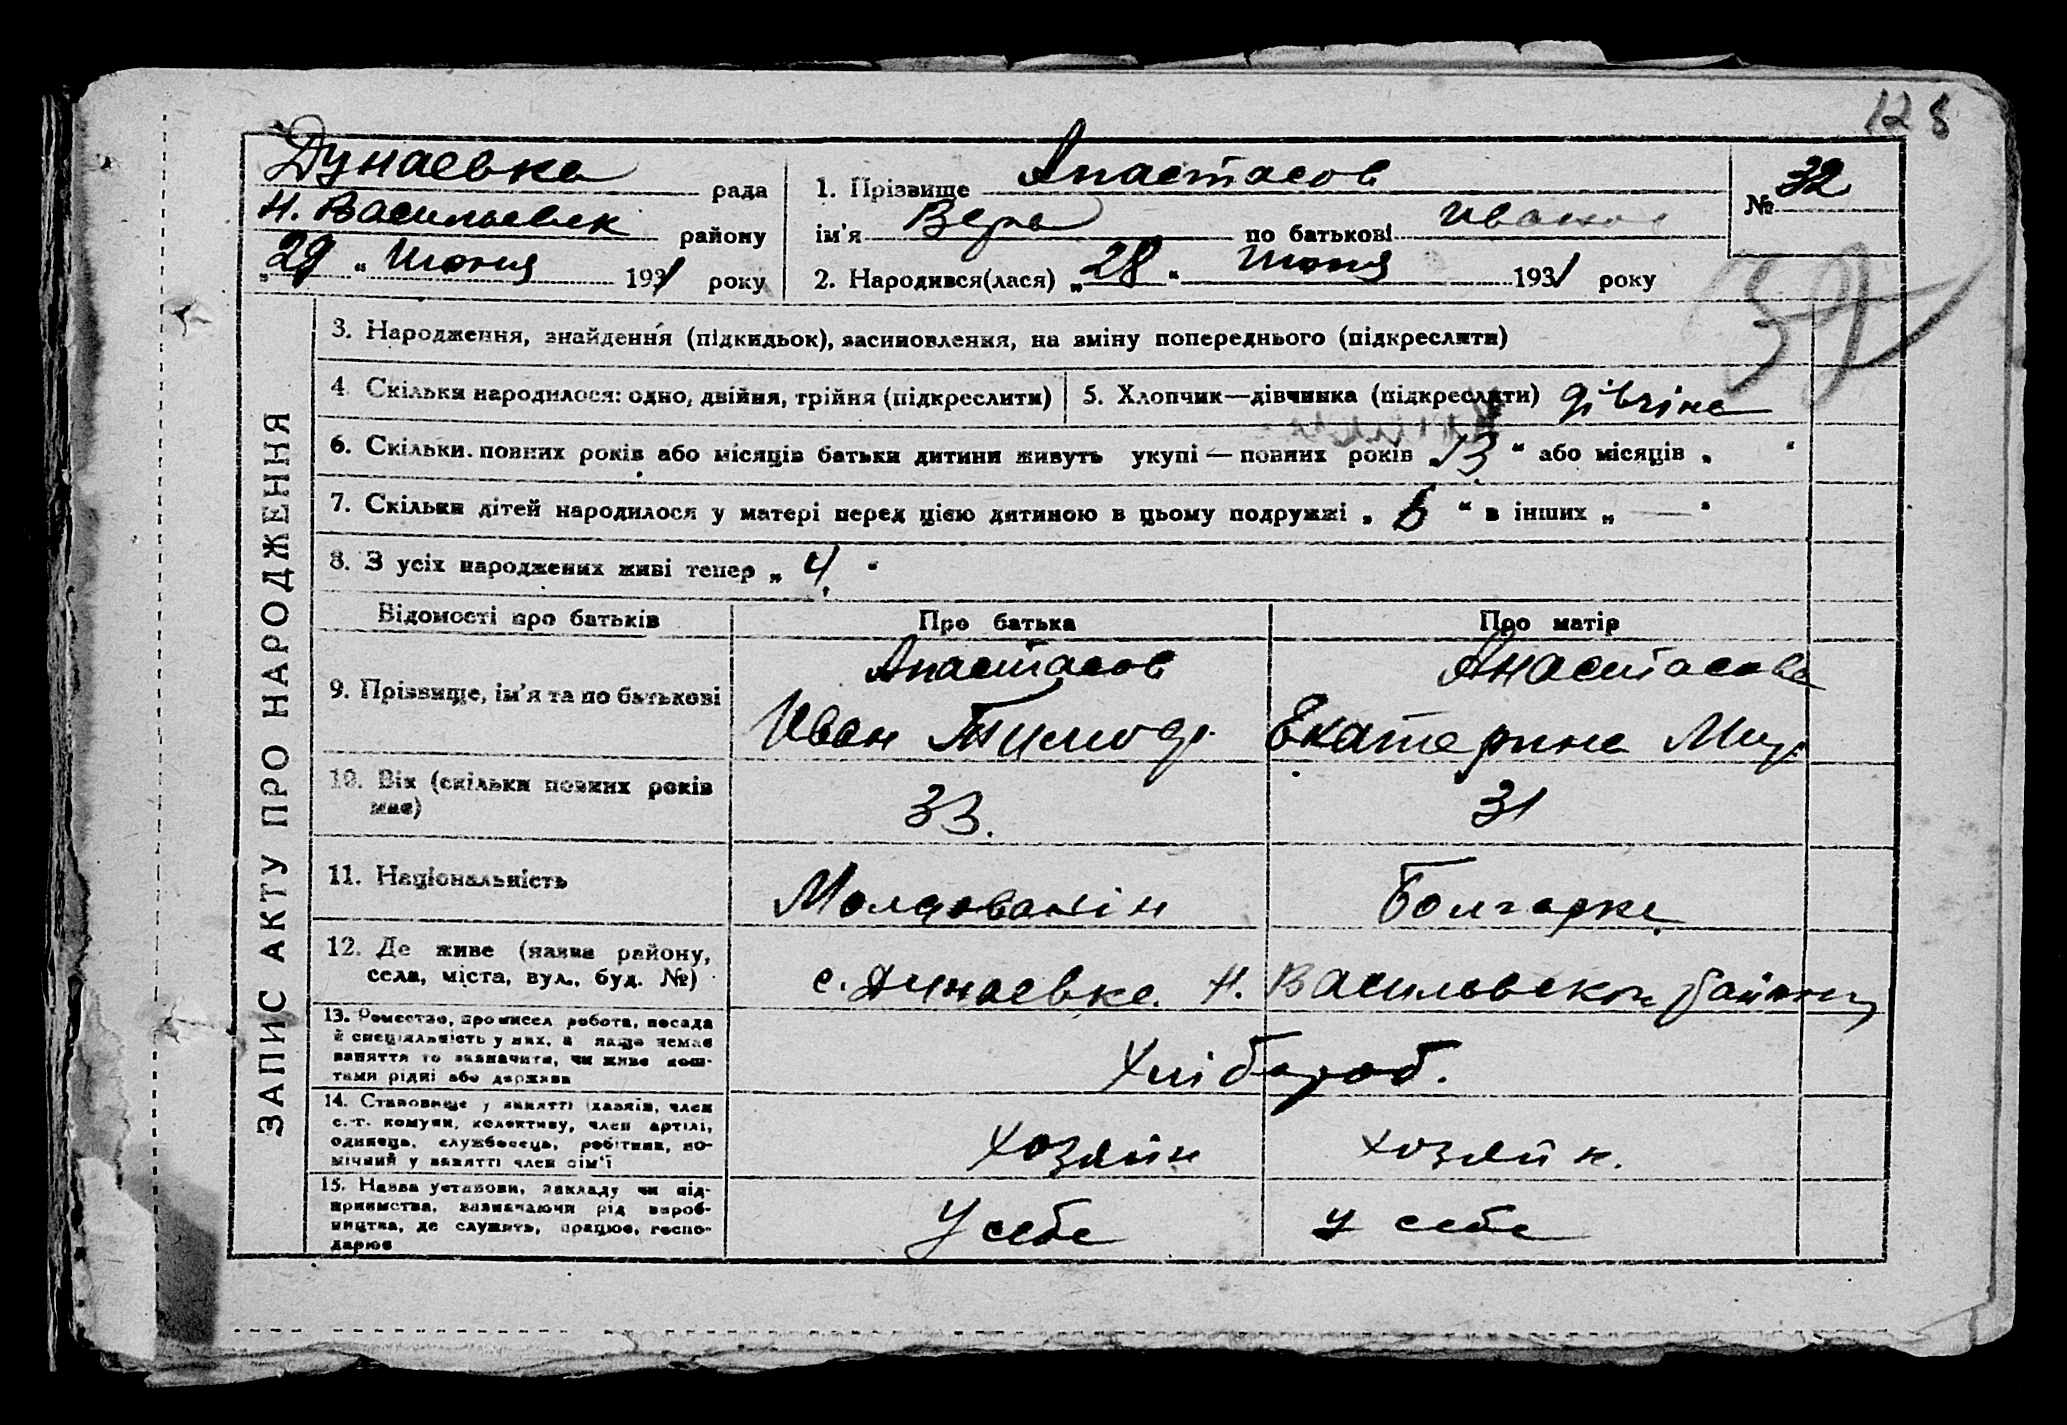 128
Дунаевка рада
Н. Васильевск району
„29“ Июня 1931 року
1. Прізвище Анастасов
ім'я Вера по батькові Иванов
2. Народився(лася) „28“ Июня 1931 року
№ 32
32
ЗАПИС АКТУ ПРО НАРОДЖЕННЯ
3. Народження, знайдення (підкидьок), засиновлення, на зміну попереднього (підкреслити)
4. Скільки народилося: одно, двійня, трійня (підкреслити)
5. Хлопчик—дівчинка (підкреслити) дівчіна
6. Скільки повних років або місяців батьки дитини живуть укупі — повних років „13“ або місяців „ “
7. Скільки дітей народилося у матері перед цією дитиною в цьому подружжі „5“ в інших „—“
8. З усіх народжених живі тепер „4“
Відомості про батьків Про батька Про матір
9. Прізвище, ім'я та по батькові
Анастасов
Иван Тимоф.
Анастасова
Екатерина
10. Вік (скільки повних років має) 33. 31
11. Національність Молдованін Болгарка
12. Де живе (назва району,
села, міста, вул., буд. №)
с. Дунаевка Н. Васильевском районі
13. Ремество, промисел робота, посада
й спеціяльність у них, а якщо немає
заняття то зазначити, чи живе кош-
тами рідні або держави
Хлібороб.
14. Становище у занятті (хазяїн, член
с.-г. комуни, колективу, член артілі,
одинець, службовець, робітник, по-
мічний у занятті член сім'ї
хозяйн хозяйн.
15. Назва установи, закладу чи під-
приємства, зазначаючи рід вироб-
ництва, де служить, працює, госпо-
дарює
У себе у себе